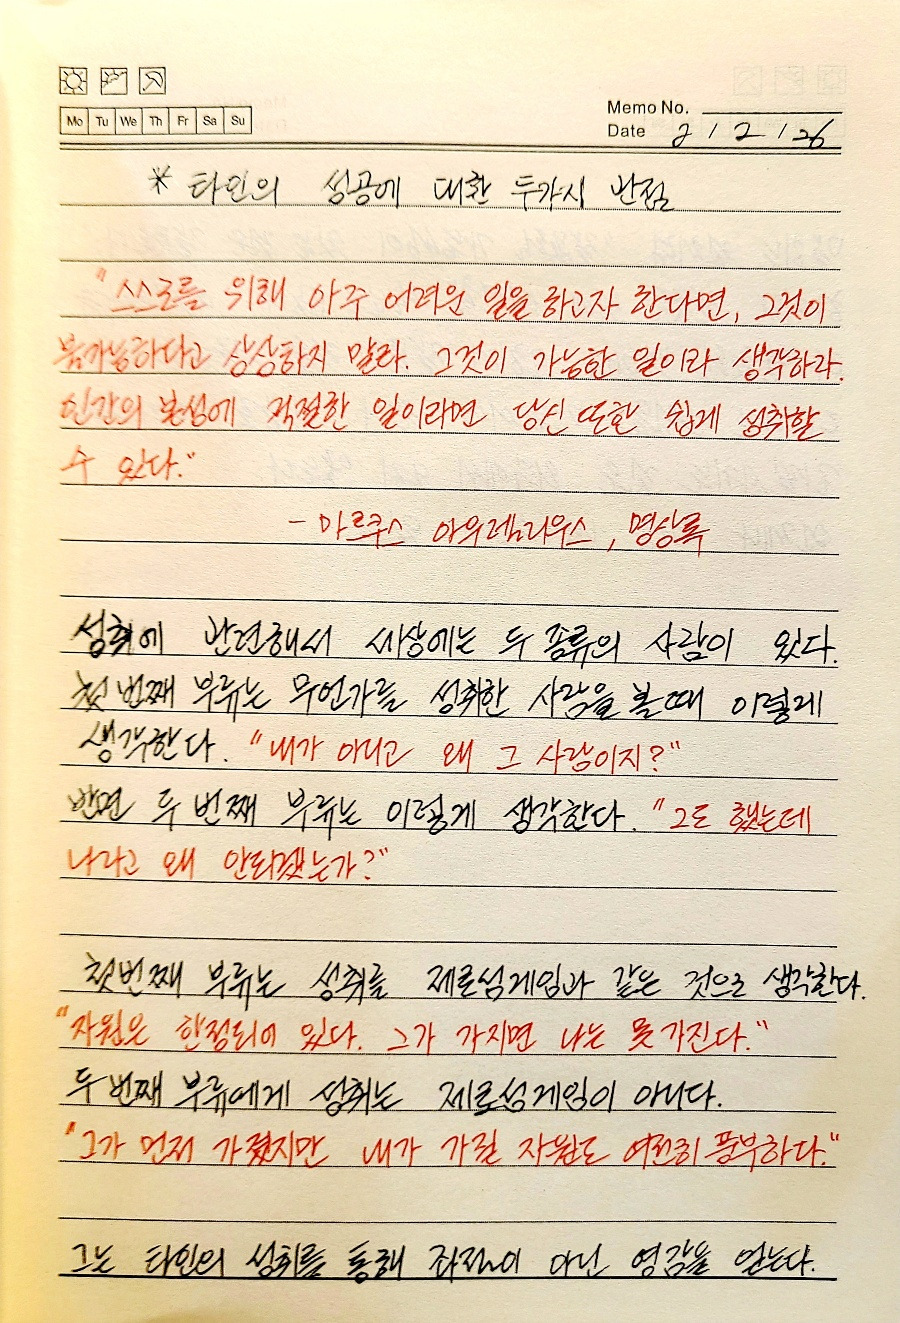 Mo Tu We Th Fr Sa Su
Memo No.
Date 2 / 2 / 26
* 타인의 성공에 대한 두가지 반점
"스스로를 위해 아주 어려운 일을 하고자 한다면, 그것이
불가능하다고 상상하지 말라. 그것이 가능한 일이라 생각하라.
인간의 본성에 적절한 일이라면 당신 또한 쉽게 성취할
수 있다."
- 마르쿠스 아우렐리우스, 명상록
성취에 관련해서 세상에는 두 종류의 사람이 있다.
첫 번째 부류는 무언가를 성취한 사람을 볼 때 이렇게
생각한다. "내가 아니고 왜 그 사람이지?"
반면 두 번째 부류는 이렇게 생각한다. "그도 했는데
나라고 왜 안되겠는가?"
첫번째 부류는 성취를 제로섬게임과 같은 것으로 생각한다.
"자원은 한정되어 있다. 그가 가지면 나는 못 가진다."
두 번째 부류에게 성취는 제로섬게임이 아니다.
"그가 먼저 가졌지만 내가 가질 자원도 여전히 풍부하다."
그는 타인의 성취를 통해 좌절이 아닌 영감을 얻는다.